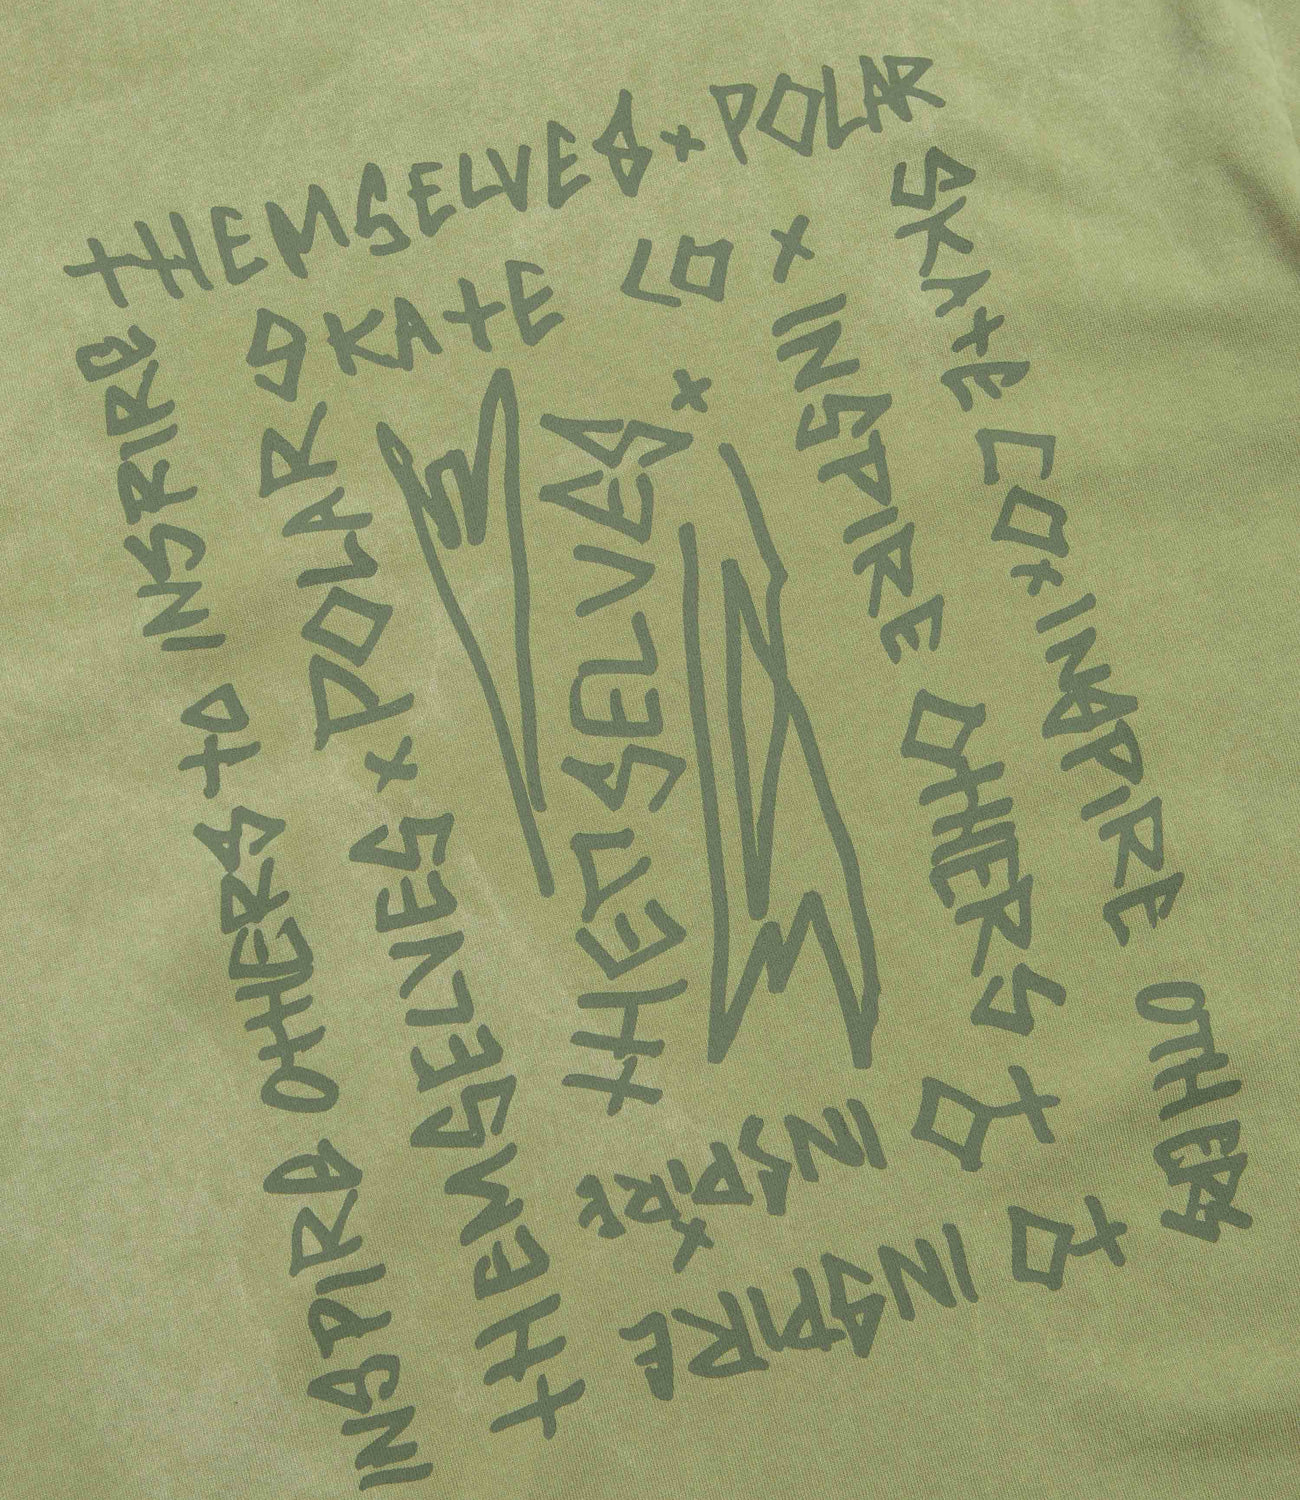 INSPIRE OTHERS TO INSPIRE
THEMSELVES × POLAR
SKATE CO × INSPIRE OTHERS
TO INSPIRE
THEMSELVES × POLAR
SKATE CO ×
INSPIRE OTHERS
TO INSPIRE ×
THEMSELVES ×